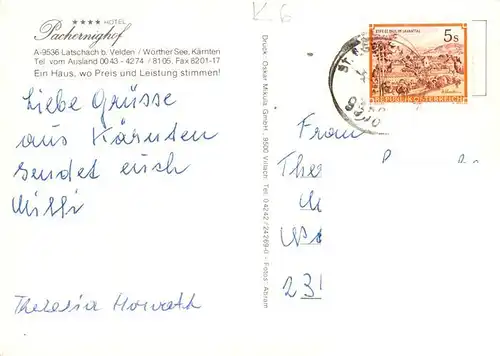 K 6
★★★★ HOTEL
Pachernighof
A-9536 Latschach b. Velden / Wörther See, Kärnten
Tel vom Ausland 0043 - 4274 / 8105, Fax 8201-17
Ein Haus, wo Preis und Leistung stimmen!
Liebe Grüsse
aus Kärnten
sendet euch
Theresia Horvath
Druck: Oskar Makula GmbH · 9500 Villach · Tel. 04242/24269-0 – Fotos: Abram
5 s
REPUBLIK ÖSTERREICH
Frau
The
231